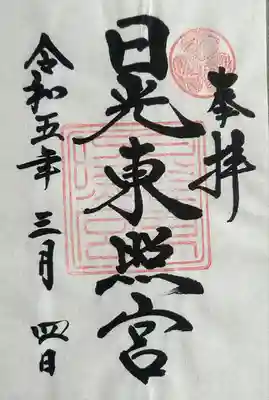 奉拝
日光東照宮
令和五年 三月 四日